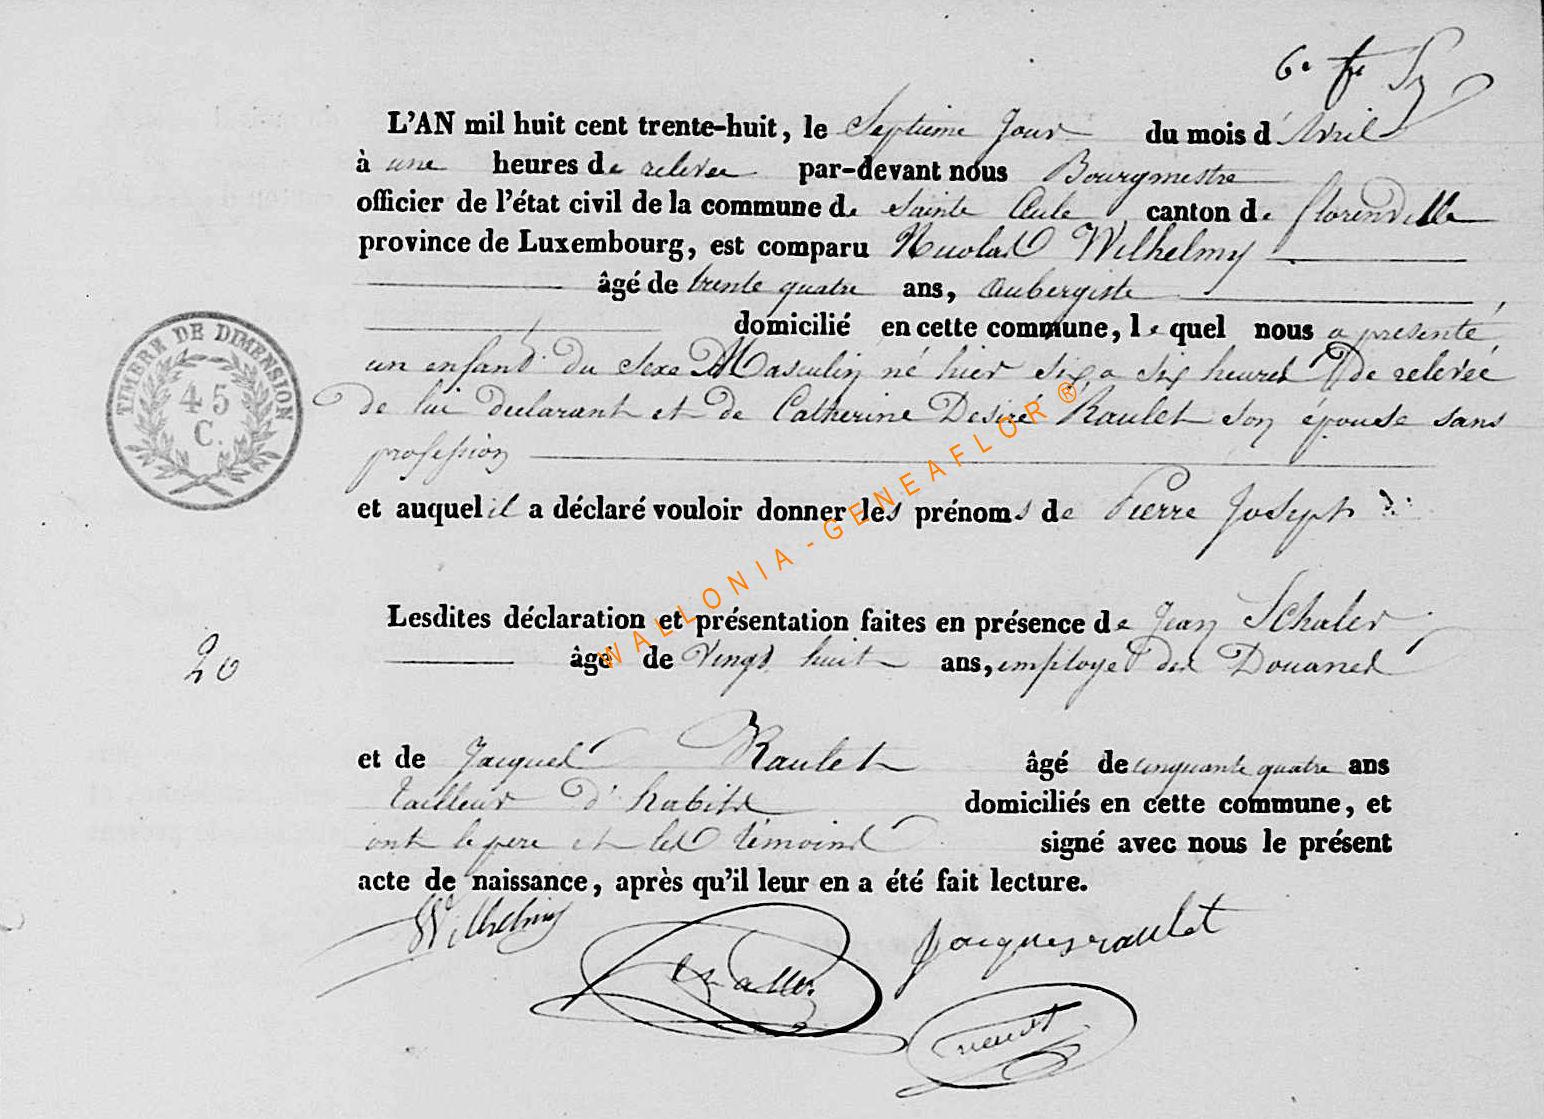 6e
L'AN mil huit cent trente-huit, le Septieme Jour du mois d'Avril
à une heures de relevée par-devant nous Bourgmestre
officier de l'état civil de la commune de Sainte Cecile canton de florenville
province de Luxembourg, est comparu Nicolas Wilhelmy
âgé de trente quatre ans, Aubergiste
domicilié en cette commune, lequel nous a présenté
un enfant du Sexe Masculin né hier Six a Six heures De relevée
De lui declarant et de Catherine Desiré Raulet son épouse sans
profession
et auquel il a déclaré vouloir donner les prénoms de Pierre Joseph
Lesdites déclaration et présentation faites en présence de Jean Schaler
âgé de Vingt huit ans, employé des Douanes
et de Jacques Raulet âgé de cinquante quatre ans
tailleur d'habits domiciliés en cette commune, et
ont le pere et les témoins signé avec nous le présent
acte de naissance, après qu'il leur en a été fait lecture.
Wilhelmy
Jacques raulet
TIMBRE DE DIMENSION
45
C.
20
WALLONIA - GENEAFLOR ®